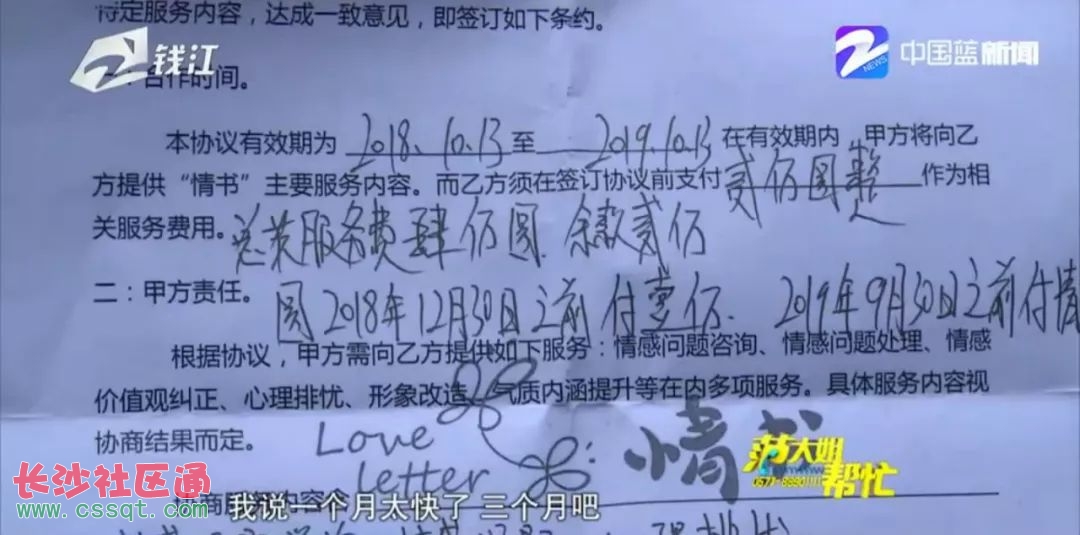 特定服务内容，达成一致意见，即签订如下条约。
钱江
NEWS
中国蓝新闻
一：合作时间。
本协议有效期为 2018.10.13 至 2019.10.13 在有效期内，甲方将向乙
方提供“情书”主要服务内容。而乙方须在签订协议前支付 贰佰圆整 作为相
关服务费用。总共服务费肆佰圆.余款贰佰
二：甲方责任。
圆2018年12月30日之前付壹佰. 2019年9月30日之前付情
根据协议，甲方需向乙方提供如下服务：情感问题咨询、情感问题处理、情感
价值观纠正、心理排忧、形象改造、气质内涵提升等在内多项服务。具体服务内容视
协商结果而定。
Love
letter
：情书
范大姐
帮忙
0571-88901111
长沙社区通
www.cssqt.com
协商服务内容
我说一个月太快了 三个月吧